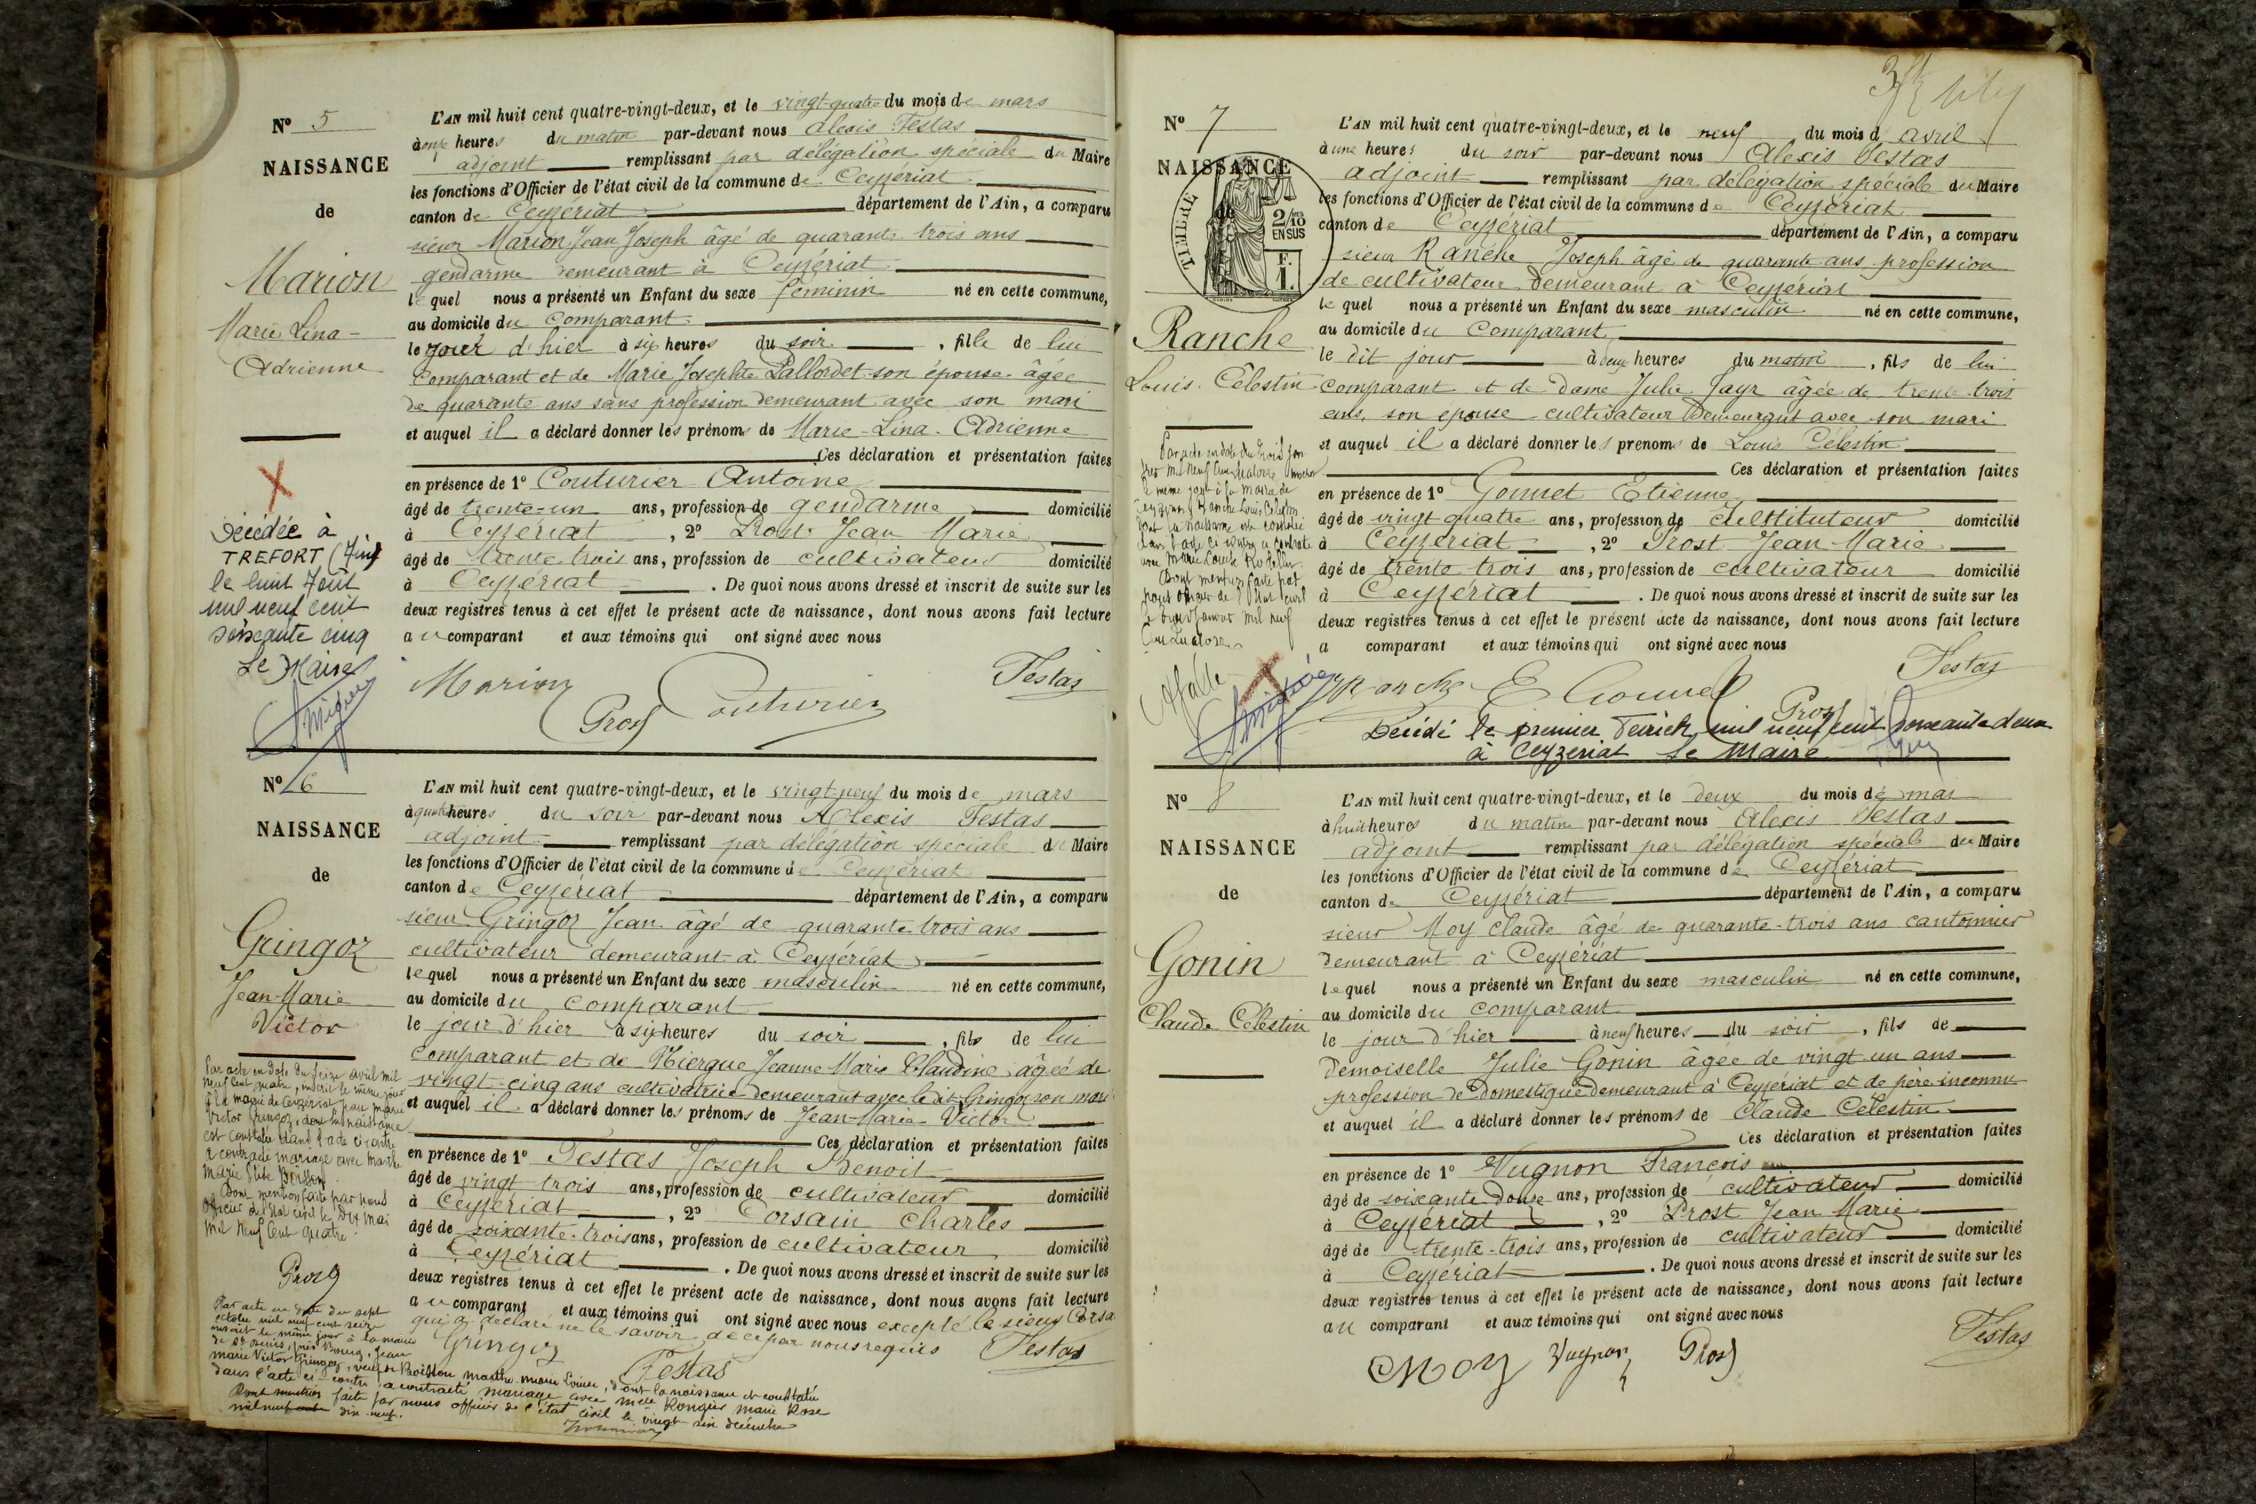 N° 5
NAISSANCE
de
Marion
Marie Lina-
Adrienne
Décédée à
TREFORT (Ain)
le huit Août
mil neuf cent
soixante cinq
Le Maire
L'AN mil huit cent quatre-vingt-deux, et le vingt-quatre du mois de mars
à onze heures du matin par-devant nous Alexis Festas
adjoint remplissant par délégation spéciale du Maire
les fonctions d'Officier de l'état civil de la commune de Ceyzériat
canton de Ceyzériat département de l'Ain, a comparu
sieur Marion Jean Joseph âgé de quarante trois ans
gendarme demeurant à Ceyzériat
lequel nous a présenté un Enfant du sexe féminin né en cette commune,
au domicile du comparant
le jour d'hier à six heures du soir, fille de lui
comparant et de Marie Josephte Lallordet son épouse âgée
de quarante ans sans profession demeurant avec son mari
et auquel il a déclaré donner les prénoms de Marie-Lina-Adrienne
Ces déclaration et présentation faites
en présence de 1° Couturier Antoine
âgé de trente-un ans, profession de gendarme domicilié
à Ceyzériat, 2° Prost Jean Marie
âgé de trente trois ans, profession de cultivateur domicilié
à Ceyzériat. De quoi nous avons dressé et inscrit de suite sur les
deux registres tenus à cet effet le présent acte de naissance, dont nous avons fait lecture
au comparant et aux témoins qui ont signé avec nous
Marion Prost Couturier Festas
N° 6
NAISSANCE
de
Gringoz
Jean-Marie
Victor
Par acte en date du seize avril mil
neuf cent quatre, inscrit le même jour
à la mairie de Ceyzériat, Jean Marie
Victor Gringoz, dont la naissance
est constatée dans l'acte ci contre
a contracté mariage avec Marthe
Marie Boisson
Dont mention faite par nous
officier de l'état civil le dix mai
mil neuf cent quatre
Prost
L'AN mil huit cent quatre-vingt-deux, et le vingt-neuf du mois de mars
à quatre heures du soir par-devant nous Alexis Festas
adjoint remplissant par délégation spéciale du Maire
les fonctions d'Officier de l'état civil de la commune de Ceyzériat
canton de Ceyzériat département de l'Ain, a comparu
sieur Gringoz Jean âgé de quarante trois ans
cultivateur demeurant à Ceyzériat
lequel nous a présenté un Enfant du sexe masculin né en cette commune,
au domicile du comparant
le jour d'hier à six heures du soir, fils de lui
comparant et de Jeanne Marie Claudine âgée de
vingt-cinq ans cultivatrice demeurant avec le dit Gringoz son mari
et auquel il a déclaré donner les prénoms de Jean-Marie-Victor
Ces déclaration et présentation faites
en présence de 1° Festas Joseph Benoit
âgé de vingt trois ans, profession de cultivateur domicilié
à Ceyzériat, 2° Corsain Charles
âgé de soixante-trois ans, profession de cultivateur domicilié
à Ceyzériat. De quoi nous avons dressé et inscrit de suite sur les
deux registres tenus à cet effet le présent acte de naissance, dont nous avons fait lecture
au comparant et aux témoins qui ont signé avec nous excepté le sieur Corsa
qui a déclaré ne le savoir de ce par nous requis
Gringoz Festas Festas
Par acte en date du sept
octobre mil neuf cent seize
inscrit le même jour à la mairie
de St Denis, près Bourg, Jean
Marie Victor Gringoz, veuf de Boisson Marthe Marie, dont la naissance est constatée
dans l'acte ci-contre, a contracté mariage avec Melle Marie Rose
Dont mention faite par nous officier de l'état civil le vingt six décembre
mil neuf cent dix neuf.
N° 7
NAISSANCE
de
TIMBRE
2/10
EN SUS
F.
1.
Ranche
Louis Célestin
L'AN mil huit cent quatre-vingt-deux, et le neuf du mois d avril
à une heures du soir par-devant nous Alexis Festas
adjoint remplissant par délégation spéciale du Maire
les fonctions d'Officier de l'état civil de la commune de Ceyzériat
canton de Ceyzériat département de l'Ain, a comparu
sieur Ranche Joseph âgé de quarante ans profession
de cultivateur demeurant à Ceyzériat
lequel nous a présenté un Enfant du sexe masculin né en cette commune,
au domicile du comparant
le dit jour à heures du matin, fils de lui
comparant et de dame Julie Jayr âgée de trente trois
ans, son épouse cultivateur demeurant avec son mari
et auquel il a déclaré donner les prénoms de Louis Célestin
Ces déclaration et présentation faites
en présence de 1° Gonnet Etienne
âgé de vingt quatre ans, profession de domicilié
à Ceyzériat, 2° Prost Jean-Marie
âgé de trente trois ans, profession de cultivateur domicilié
à Ceyzériat. De quoi nous avons dressé et inscrit de suite sur les
deux registres tenus à cet effet le présent acte de naissance, dont nous avons fait lecture
a comparant et aux témoins qui ont signé avec nous
Ranche E Gonnet Prost Festas
Décédé le premier mil neuf cent soixante deux
à Ceyzeriat Le Maire
Par acte en date du trois jan
vier mil neuf cent quatorze inscrit
le même jour à la mairie de
Ceyzériat Ranche Louis Célestin
dont la naissance est constatée
dans l'acte ci contre a contracté
avec Marie Louise
Dont mention faite par
nous officier de l'état civil
le janvier mil neuf
cent quatorze
N° 8
NAISSANCE
de
Gonin
Claude Célestin
L'AN mil huit cent quatre-vingt-deux, et le deux du mois de mai
à huit heures du matin par-devant nous Alexis Festas
adjoint remplissant par délégation spéciale du Maire
les fonctions d'Officier de l'état civil de la commune de Ceyzériat
canton de Ceyzériat département de l'Ain, a comparu
sieur Moy Claude âgé de quarante-trois ans cantonnier
demeurant à Ceyzériat
lequel nous a présenté un Enfant du sexe masculin né en cette commune,
au domicile du comparant
le jour d'hier à neuf heures du soir, fils de
demoiselle Julie Gonin âgée de vingt un ans
profession de domestique demeurant à Ceyzériat et de père inconnu
et auquel il a déclaré donner les prénoms de Claude Célestin
Ces déclaration et présentation faites
en présence de 1° Vugnon François
âgé de soixante douze ans, profession de cultivateur domicilié
à Ceyzériat, 2° Prost Jean Marie
âgé de trente-trois ans, profession de cultivateur domicilié
à Ceyzériat. De quoi nous avons dressé et inscrit de suite sur les
deux registres tenus à cet effet le présent acte de naissance, dont nous avons fait lecture
au comparant et aux témoins qui ont signé avec nous
Moy Vugnon Prost Festas